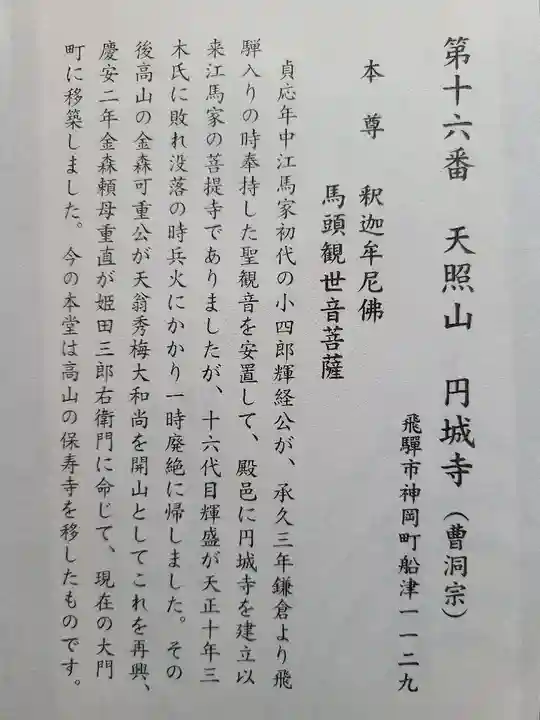 第十六番　天照山　円城寺（曹洞宗）
飛驒市神岡町船津一一二九
本尊　釈迦牟尼佛
馬頭観世音菩薩
貞応年中江馬家初代の小四郎輝経公が、承久三年鎌倉より飛
騨入りの時奉持した聖観音を安置して、殿邑に円城寺を建立以
来江馬家の菩提寺でありましたが、十六代目輝盛が天正十年三
木氏に敗れ没落の時兵火にかかり一時廃絶に帰しました。その
後高山の金森可重公が天翁秀梅大和尚を開山としてこれを再興、
慶安二年金森頼母重直が姫田三郎右衛門に命じて、現在の大門
町に移築しました。今の本堂は高山の保寿寺を移したものです。